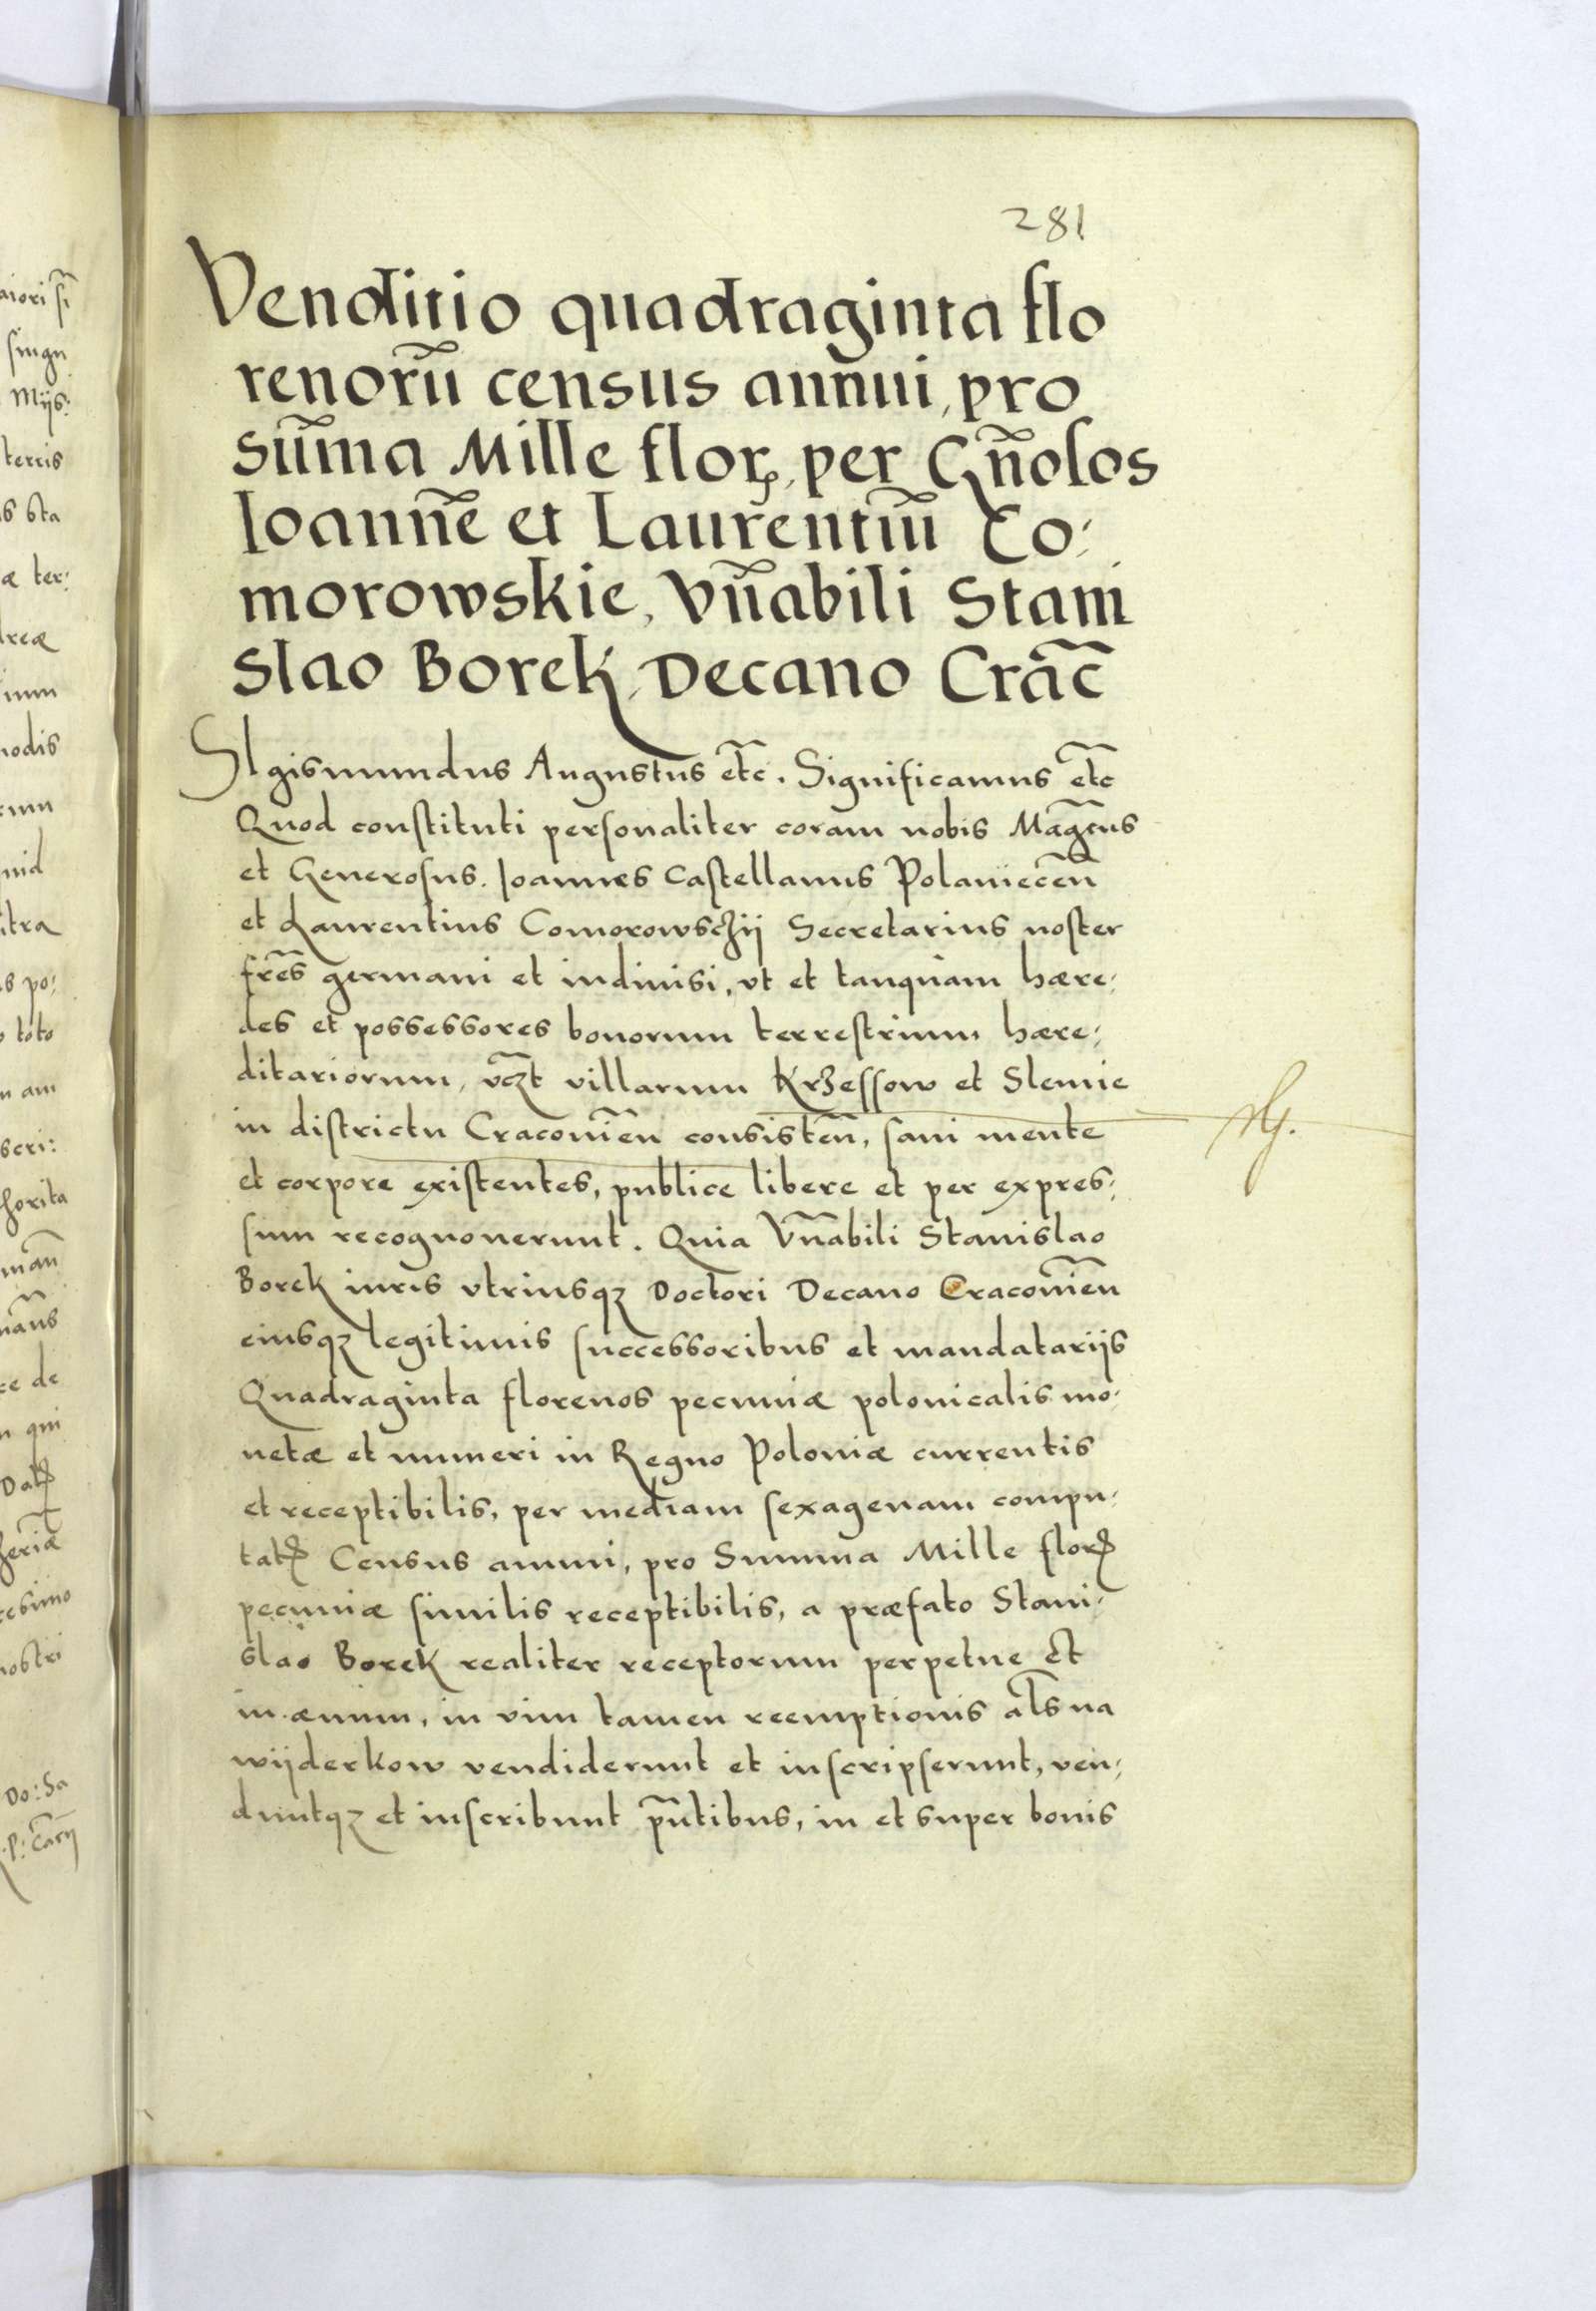 281
Venditio quadraginta flo
renorũ census annui, pro
sum̃a Mille florꝝ, per Gñosos
Ioannẽ et Laurentiũ Co:
morowskie, Vñabili Stani
slao Borek, Decano Crac̃
SIgismundus Augustus etc̃. Significamus etc̃
Quod constituti personaliter coram nobis Mag̃cus
et Generosus. Ioannes Castellanus Polaniecen̄
et Laurentius Comorowschij Secretarius noster
fr̃es germani et indiuisi, vt et tanquam hære:
des et possessores bonorum terrestrium hære:
ditariorum, vcz̃t villarum Krzessow et Slemie
in districtu Cracouien̄ consisten̄, sani mente
et corpore existentes, publice libere et per expres:
sum recognouerunt. Quia Vñabili Stanislao
Borek iuris vtriusqꝫ Doctori Decano Cracouien̄
eiusqꝫ legitimis successoribus et mandatarijs
Quadraginta florenos pecuniæ polonicalis mo:
netæ et numeri in Regno Poloniæ currentis
et receptibilis, per mediam sexagenam compu:
tatꝝ Census annui, pro Summa Mille florꝝ
pecuniæ similis receptibilis, a præfato Stani:
slao Borek realiter receptorum perpetue et
in æuum, in vim tamen reemptionis al̃s na
wijderkow vendiderunt et inscripserunt, ven:
duntqꝫ et inscribunt pñtibus, in et super bonis
aiori
singu
Mijs:
terris
sta
æ ter:
dreæ
ium
nodis
uid
itra
po:
toto
am
scri:
horita
de
qui
esimo
nostri
Do: Sa